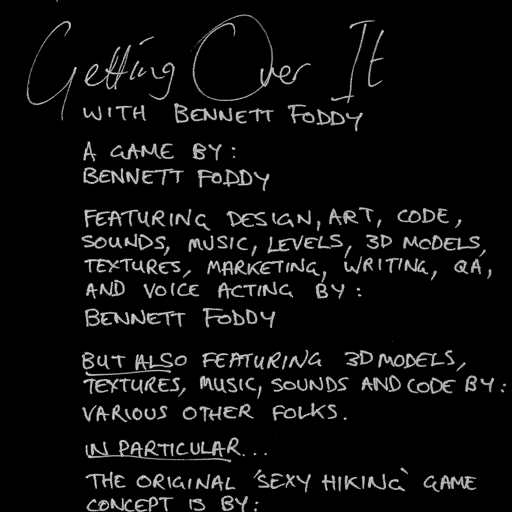 Getting Over It
WITH BENNETT FODDY
A GAME BY:
BENNETT FODDY
FEATURING DESIGN, ART, CODE,
SOUNDS, MUSIC, LEVELS, 3D MODELS,
TEXTURES, MARKETING, WRITING, QA,
AND VOICE ACTING BY:
BENNETT FODDY
BUT ALSO FEATURING 3D MODELS,
TEXTURES, MUSIC, SOUNDS AND CODE BY:
VARIOUS OTHER FOLKS.
IN PARTICULAR...
THE ORIGINAL 'SEXY HIKING' GAME
CONCEPT IS BY: